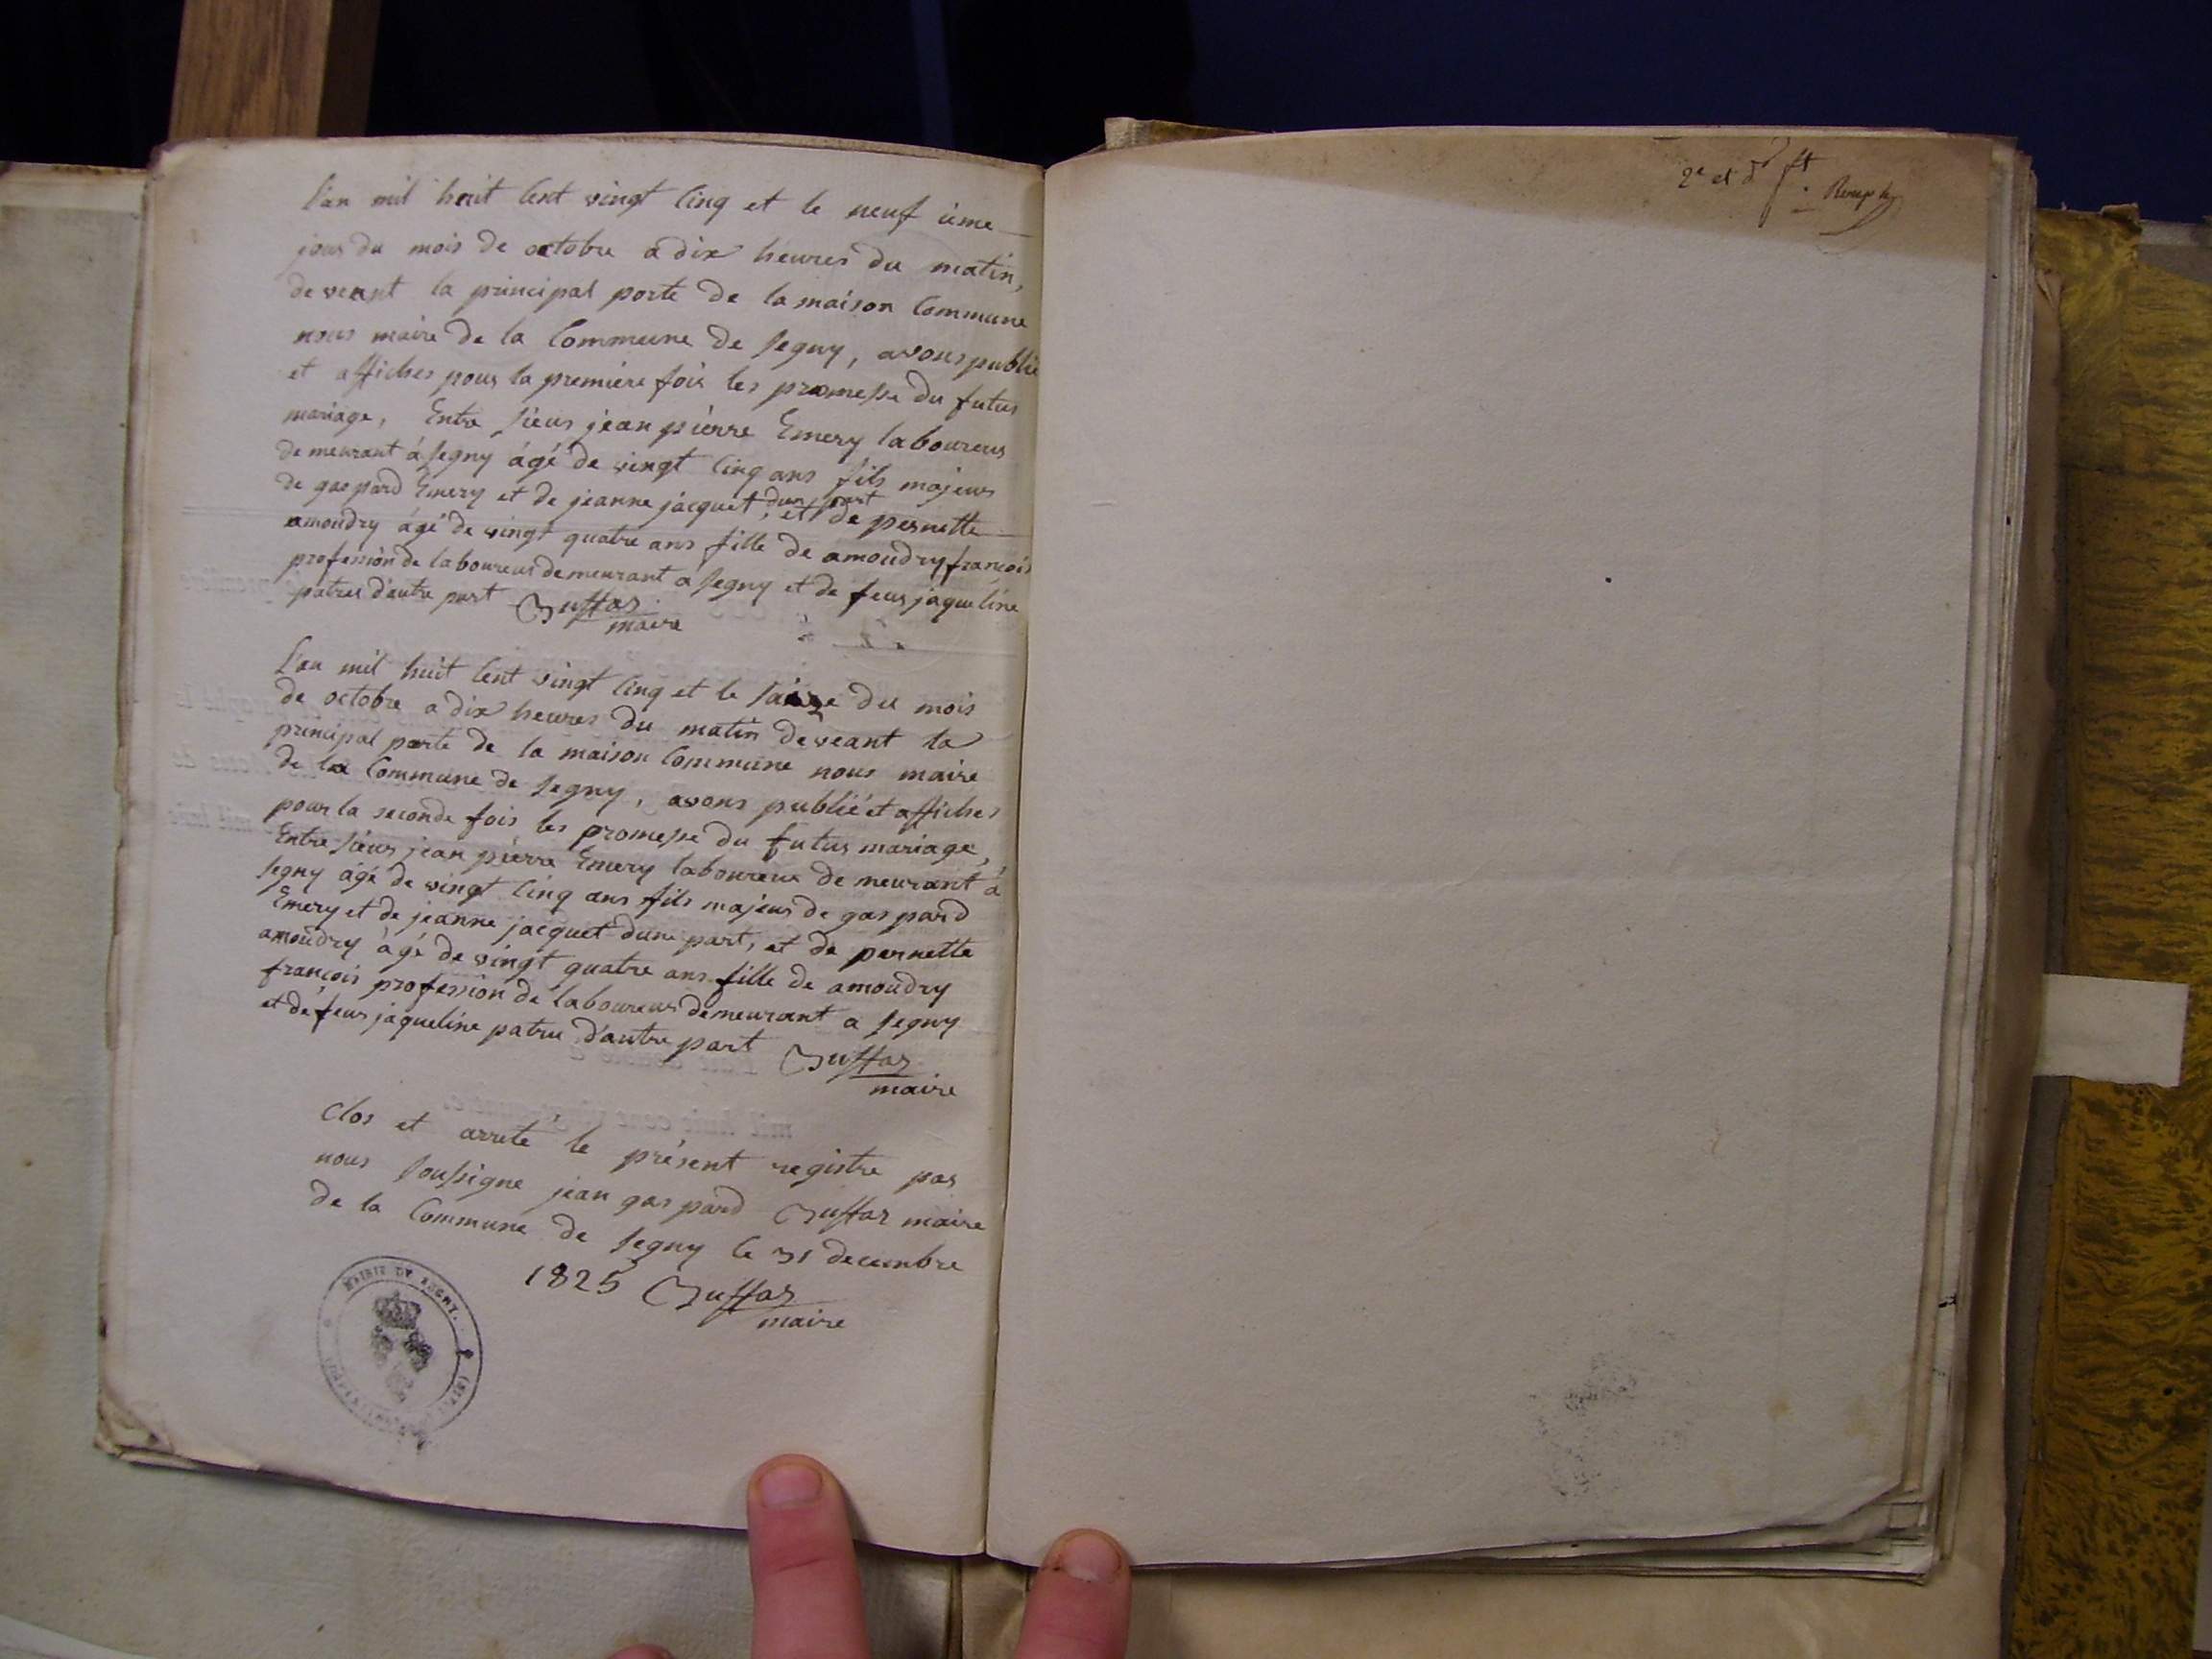 L'an mil huit Cent vingt Cinq et le neuf ieme
jour du mois de octobre a dix heures du matin,
deveant la principal porte de la maison Commune
nous maire de la Commune de Segny, avons publié
et affiches pour la premiere fois les promesse du futur
mariage, Entre sieur jean pierre Emery laboureur
demeurant à Segny âgé de vingt Cinq ans fils majeur
de gaspard Emery et de jeanne jacquet, dune part et de pernette
amoudry âgé de vingt quatre ans fille de amoudry françois
profession de laboureur demeurant a Segny et de feur jaqueline
patru d'autre part Buffaz
maire
L'an mil huit Cent vingt Cinq et le saize du mois
de octobre a dix heures du matin deveant la
principal porte de la maison Commune nous maire
de la Commune de Segny, avons publié et affiches
pour la seconde fois les promesse du futur mariage,
Entre sieur jean pierre Emery laboureur demeurant à
Segny âgé de vingt Cinq ans fils majeur de gaspard
Emery et de jeanne jacquet dune part, et de pernette
amoudry âgé de vingt quatre ans fille de amoudry
françois profession de laboureur demeurant a Segny
et de feur jaqueline patru d'autre part Buffaz
maire
Clos et arreté le présent registre par
nous soussigne jean gaspard Buffaz maire
de la Commune de Segny le 31 decembre
1825 Buffaz
maire
MAIRIE DE SEGNY.
2e et d